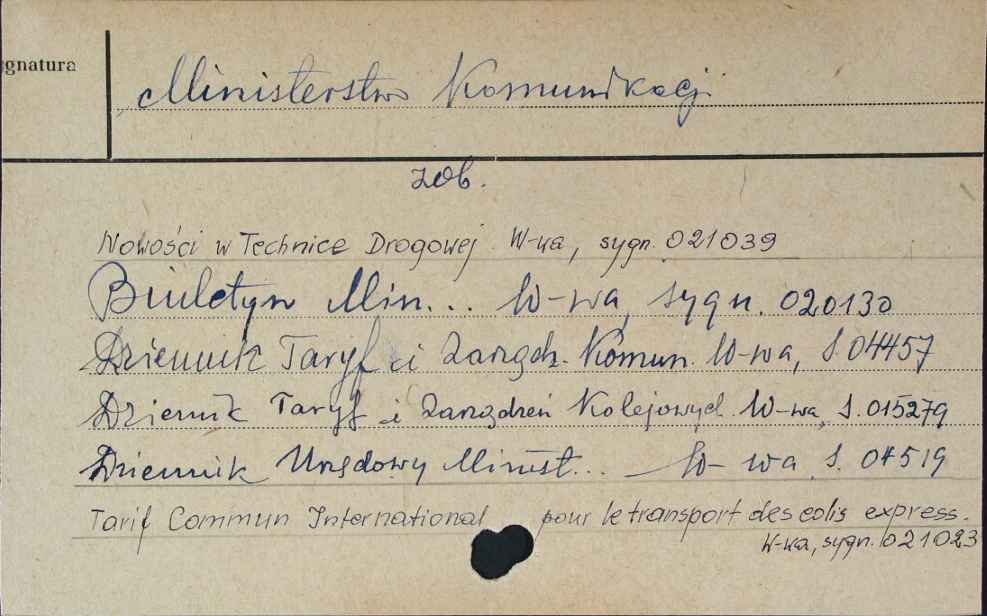 ygnatura
Ministerstwo Komunikacji
zob.
Nowości w Technice Drogowej. W-wa, sygn. 021039
Biuletyn Min... W-wa, sygn. 020130
Dziennik Taryf i Zarządz. Komun. W-wa, S. 04457
Dziennik Taryf i Zarządzeń Kolejowych. W-wa, S. 015279
Dziennik Urzędowy Minist... W-wa S. 04519
Tarif Commun International pour le transport des colis express.
W-wa, sygn. 021023